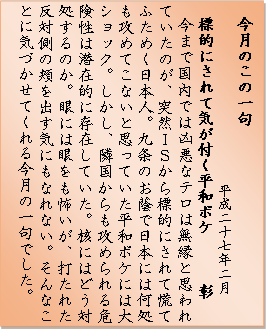 今月のこの一句
平成二十七年二月
標的にされて気が付く平和ボケ　彰
今まで国内では凶悪なテロは無縁と思われ
ていたのが、突然ＩＳから標的にされて慌て
ふためく日本人。九条のお蔭で日本には何処
も攻めてこないと思っていた平和ボケには大
ショック。しかし、隣国からも攻められる危
険性は潜在的に存在していた。核にはどう対
処するのか。眼には眼をも怖いが、打たれた
反対側の頬を出す気にもなれない。そんなこ
とに気づかせてくれる今月の一句でした。